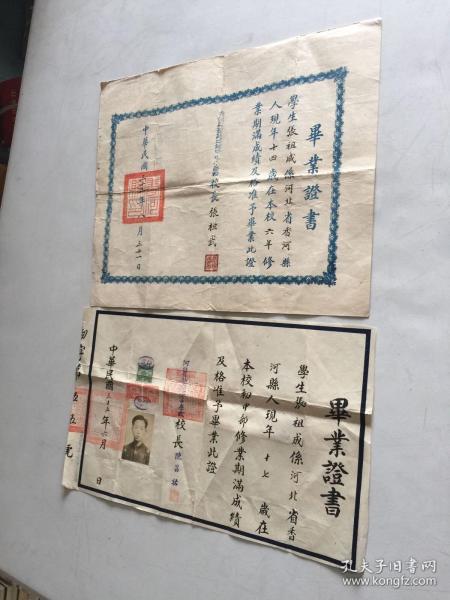 畢業證書
學生張祖咸係河北省香河縣
人現年十四歲在本校六年修
業期滿成績及格准予畢業此證
校長張祖武
中華民國年月三十一日
畢業證書
學生張祖咸係河北省香
河縣人現年十七歲在
本校初中部修業期滿成績
及格准予畢業此證
校長陳
中華民國三十五年六月日
初字第伍五號
孔夫子旧书网
www.kongfz.com